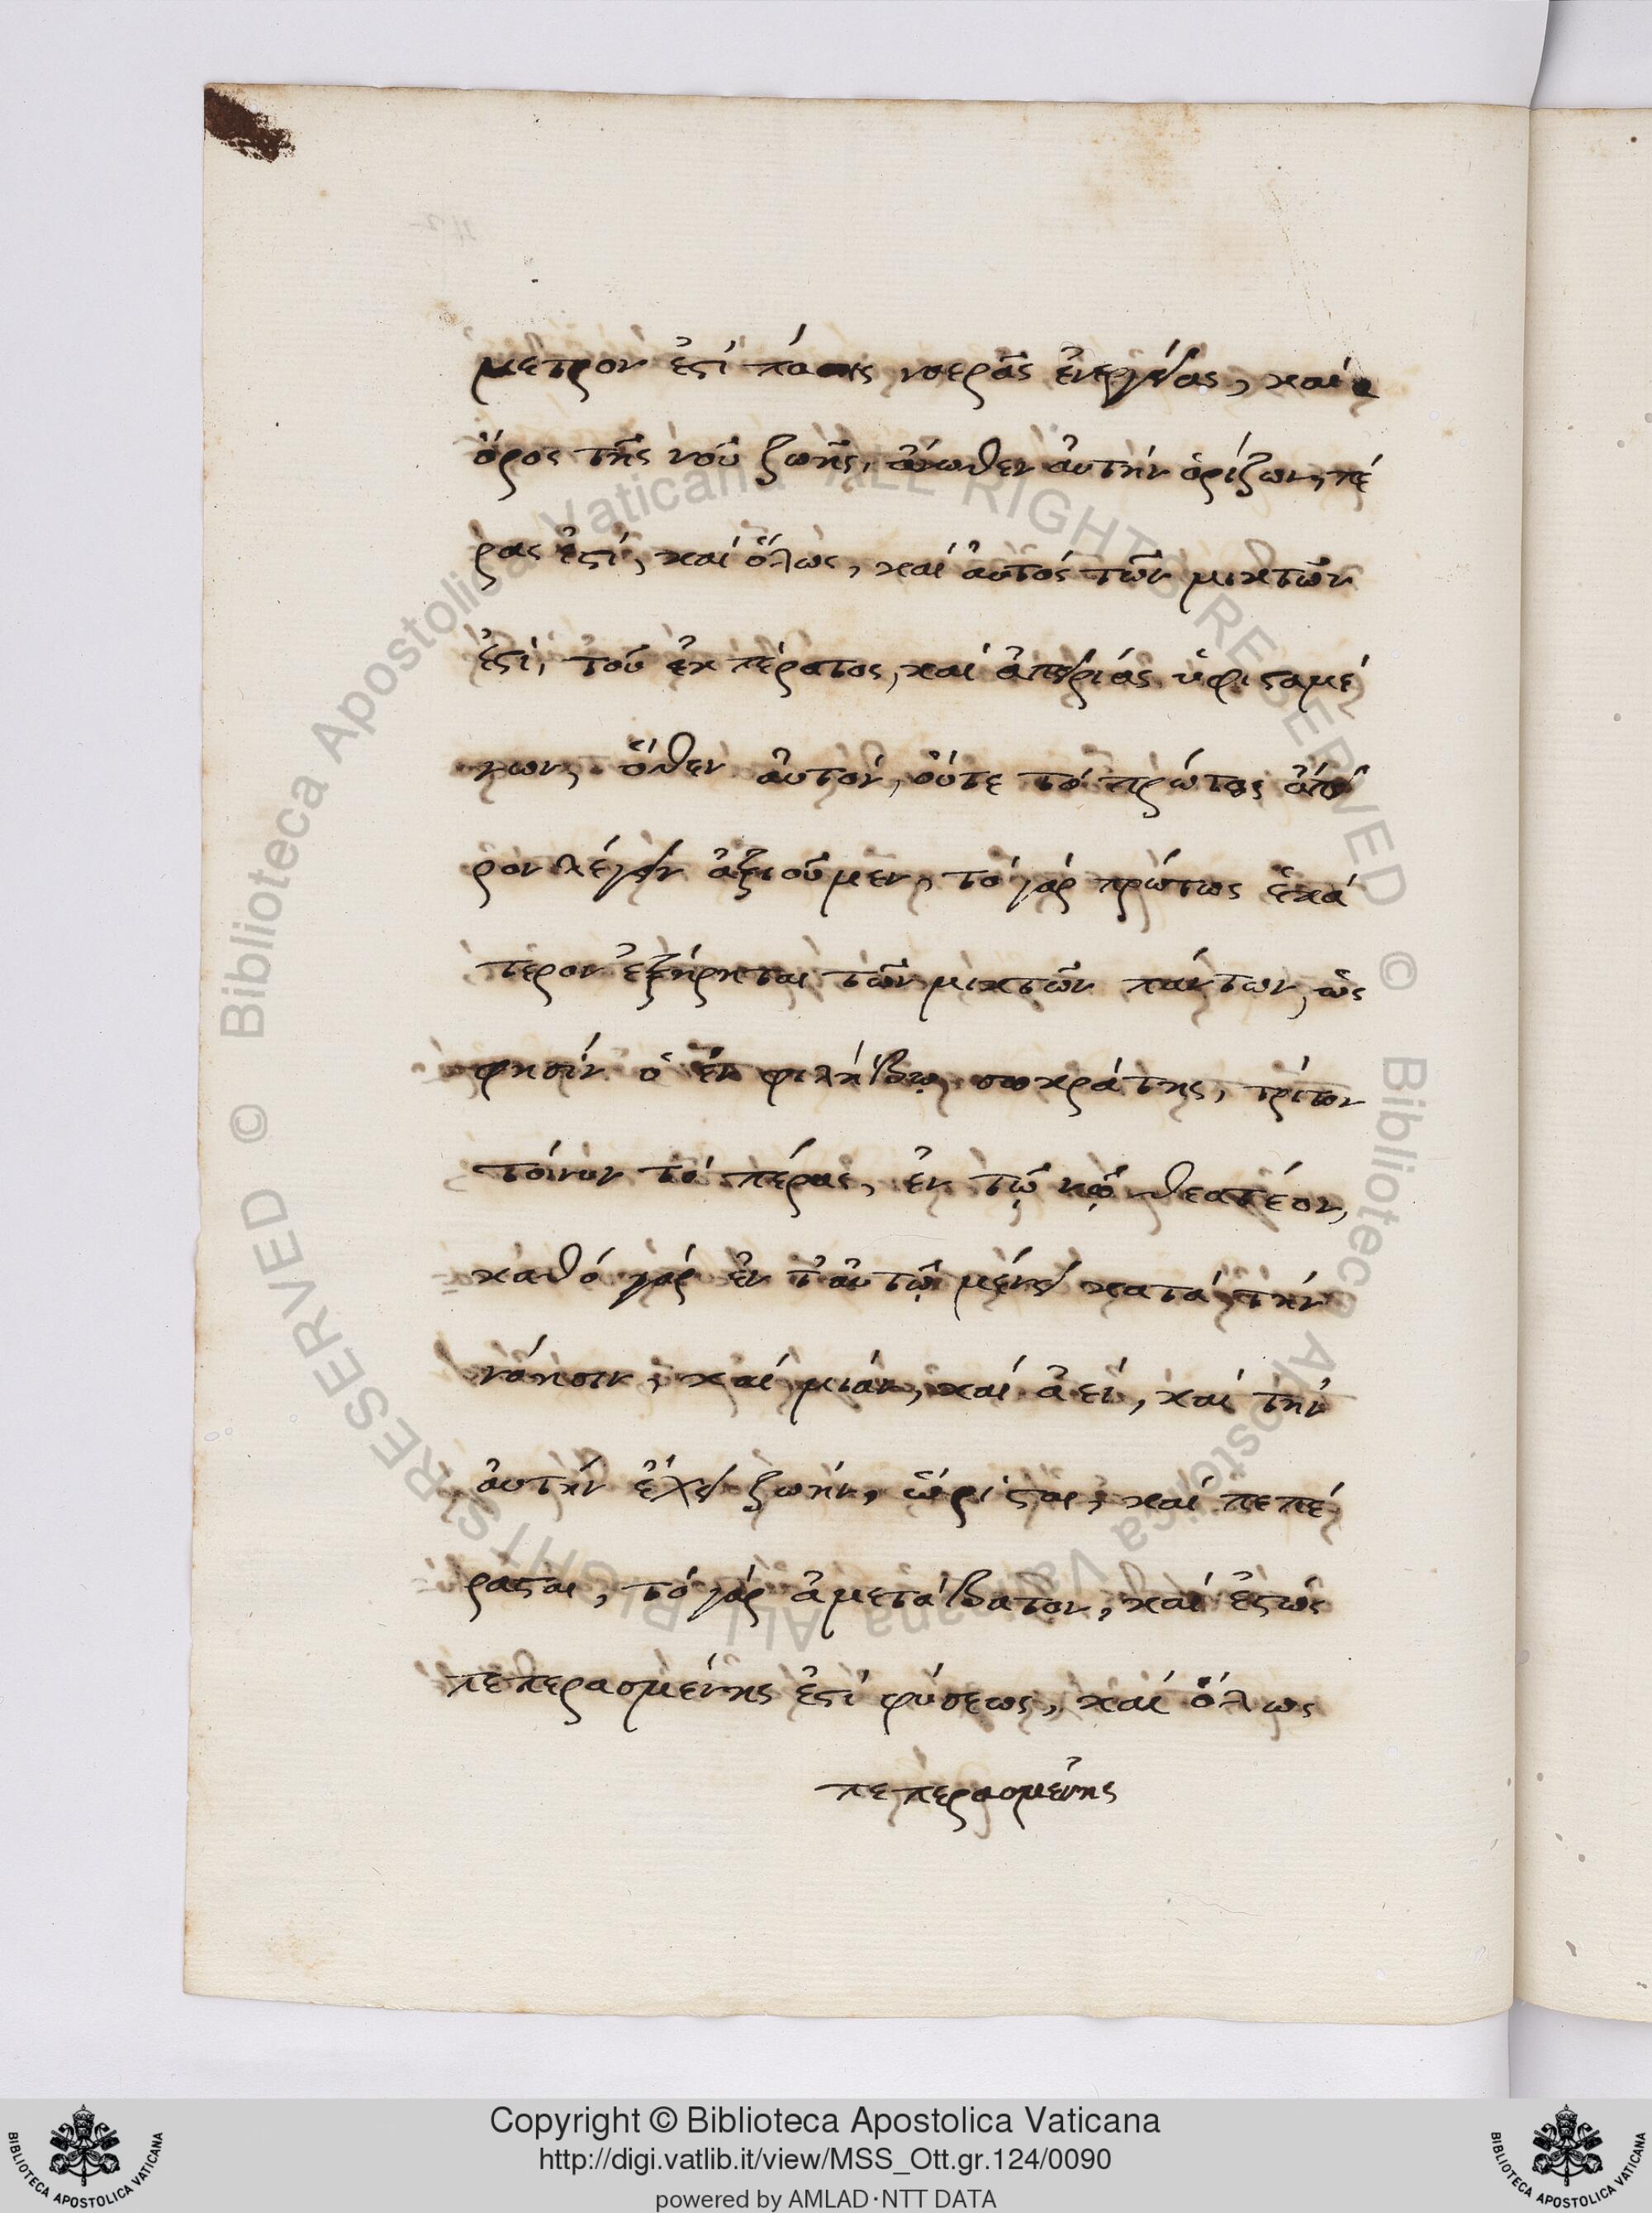 μέτρον ἐστὶ πάσης νοερᾶς ἐνεργείας, καὶ
ὅρος τῆς νοῦ ζωῆς, ἄνωθεν ἀυτὴν ὁρίζων, πέ
ρας ἐστὶ, καὶ ὅλως, καὶ ἀυτὸς τῶν μικτῶν
ἐστὶ, τοῦ ἐκ πέρατος, καὶ ἀπειρίας ὑφισταμέ
νων, ὅθεν ἀυτὸν, οὔτε τὸ πρώτως ἄπει
ρον λέγειν ἀξιοῦμεν, τὸ γὰρ πρώτως ἑκά
τερον ἐξήρηται τῶν μικτῶν πάντων, ὥς
φησὶν ὁ ἐν φιλήβῳ σωκράτης, τρίτον
τοίνυν τὸ πέρας, ἐν τῷ νῷ θεατέον,
καθὸ γὰρ ἐν ταυτῷ μένει κατὰ τὴν
νόησιν, καὶ μίαν, καὶ ἀεὶ, καὶ τὴν
ἀυτὴν ἔχει ζωὴν, ὥρισται, καὶ πεπέ
ρασται, τὸ γὰρ ἀμετάβατον, καὶ ἑστὼς
πεπερασμένης ἐστὶ φύσεως, καὶ ὅλως
πεπερασμένης
Copyright © Biblioteca Apostolica Vaticana
http://digi.vatlib.it/view/MSS_Ott.gr.124/0090
powered by AMLAD·NTT DATA